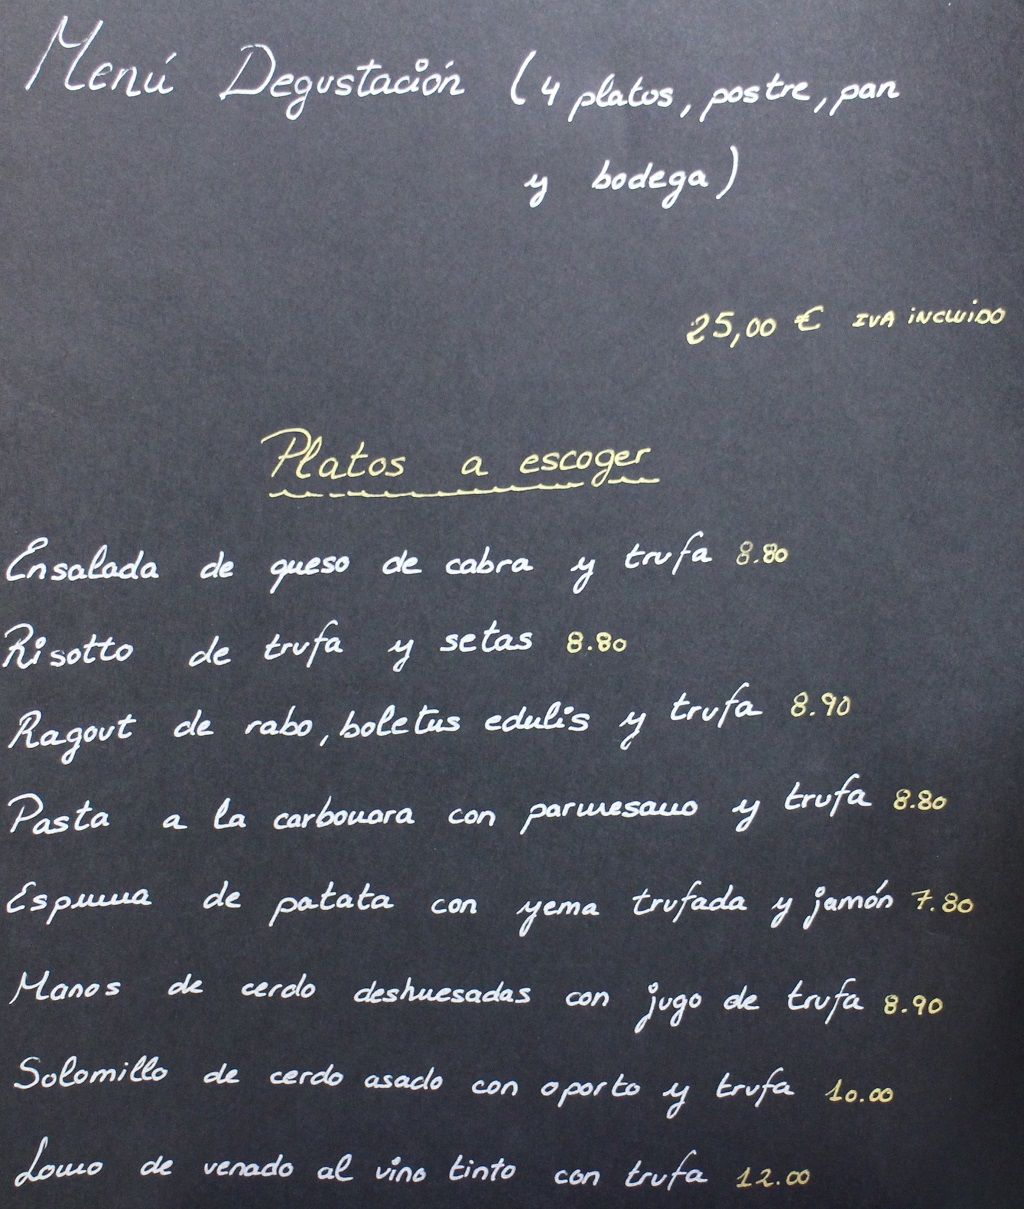 Menú Degustación (4 platos, postre, pan
y bodega)
25,00 € IVA incluido
Platos a escoger
Ensalada de queso de cabra y trufa 8.80
Risotto de trufa y setas 8.80
Ragout de rabo, boletus edulis y trufa 8.90
Pasta a la carbonara con parmesano y trufa 8.80
Espuma de patata con yema trufada y jamón 7.80
Manos de cerdo deshuesadas con jugo de trufa 8.90
Solomillo de cerdo asado con oporto y trufa 10.00
Lomo de venado al vino tinto con trufa 12.00